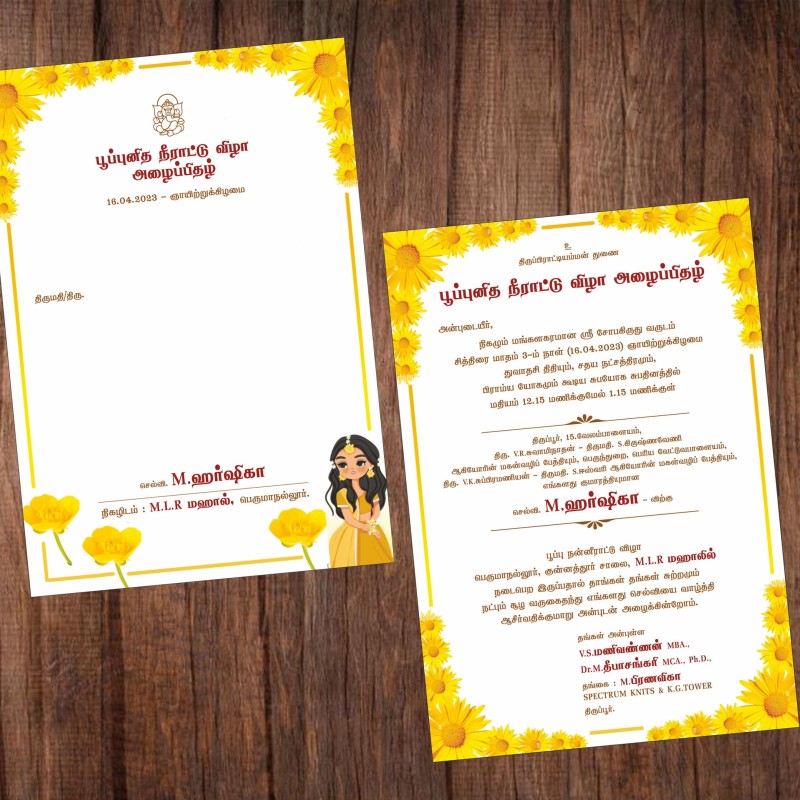 பூப்புனித நீராட்டு விழா
அழைப்பிதழ்
16.04.2023 – ஞாயிற்றுக்கிழமை
திருமதி/திரு.
செல்வி. M.ஹர்ஷிகா
நிகழிடம் : M.L.R மஹால், பெருமாநல்லூர்.
உ
திருப்பிராட்டியம்மன் துணை
பூப்புனித நீராட்டு விழா அழைப்பிதழ்
அன்புடையீர்,
நிகழும் மங்களகரமான ஸ்ரீ சோபகிருது வருடம்
சித்திரை மாதம் 3-ம் நாள் (16.04.2023) ஞாயிற்றுக்கிழமை
துவாதசி திதியும், சதய நட்சத்திரமும்,
பிராம்ய யோகமும் கூடிய சுபயோக சுபதினத்தில்
மதியம் 12.15 மணிக்குமேல் 1.15 மணிக்குள்
திருப்பூர், 15.வேலம்பாளையம்,
திரு. V.R.சுவாமிநாதன் – திருமதி. S.கிருஷ்ணவேணி
ஆகியோரின் மகன்வழிப் பேத்தியும், பெருந்துறை, பெரிய வேட்டுவபாளையம்,
திரு. V.K.சுப்பிரமணியன் – திருமதி. S.ஈஸ்வரி ஆகியோரின் மகள்வழிப் பேத்தியும்,
எங்களது குமாரத்தியுமான
செல்வி. M.ஹர்ஷிகா – விற்கு
பூப்பு நன்னீராட்டு விழா
பெருமாநல்லூர், குன்னத்தூர் சாலை, M.L.R மஹாலில்
நடைபெற இருப்பதால் தாங்கள் தங்கள் சுற்றமும்
நட்பும் சூழ வருகைதந்து எங்களது செல்வியை வாழ்த்தி
ஆசீர்வதிக்குமாறு அன்புடன் அழைக்கின்றோம்.
தங்கள் அன்புள்ள
V.S.மணிவண்ணன் MBA.,
Dr.M.தீபாசங்கரி MCA., Ph.D.,
தங்கை : M.பிரணவிகா
SPECTRUM KNITS & K.G.TOWER
திருப்பூர்.